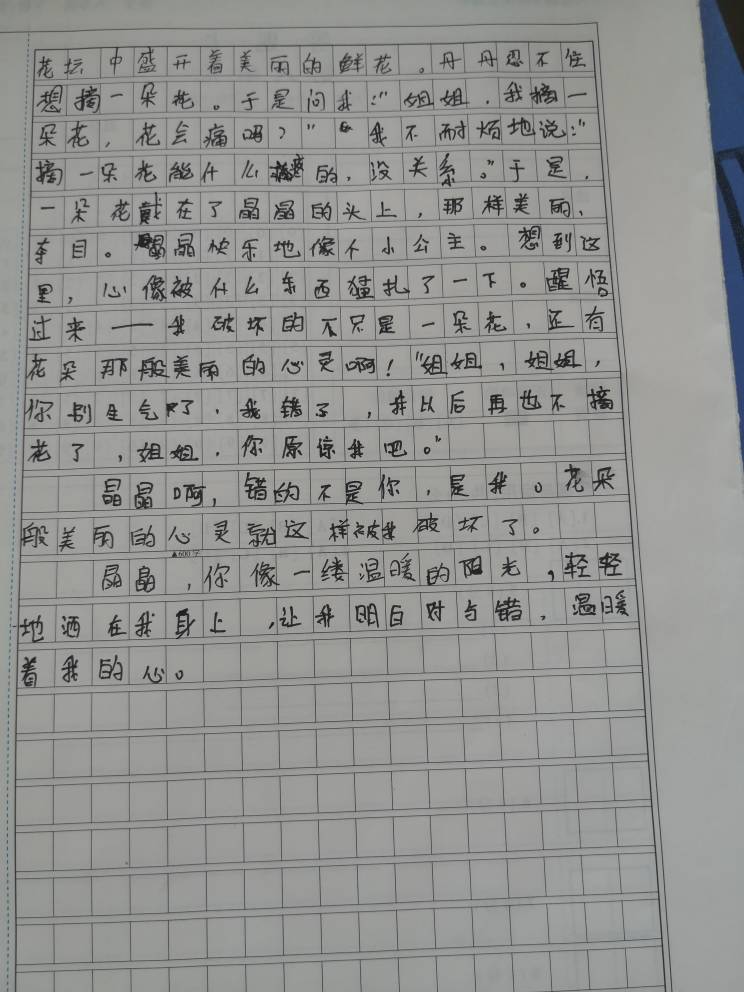 花坛中盛开着美丽的鲜花。丹丹忍不住
想摘一朵花。于是问我:"姐姐,我摘一
朵花,花会痛吗?""我不耐烦地说:"
摘一朵花能什么疼的,没关系。"于是,
一朵花戴在了晶晶的头上,那样美丽,
夺目。晶晶快乐地像个小公主。想到这
里,心像被什么东西猛扎了一下。醒悟
过来——我破坏的不只是一朵花,还有
花朵那般美丽的心灵啊!"姐姐,姐姐,
你别生气了,我错了,我以后再也不摘
花了,姐姐,你原谅我吧。"
晶晶啊,错的不是你,是我。花朵
般美丽的心灵就这样被我破坏了。
▲600字
晶晶,你像一缕温暖的阳光,轻轻
地洒在我身上,让我明白对与错,温暖
着我的心。